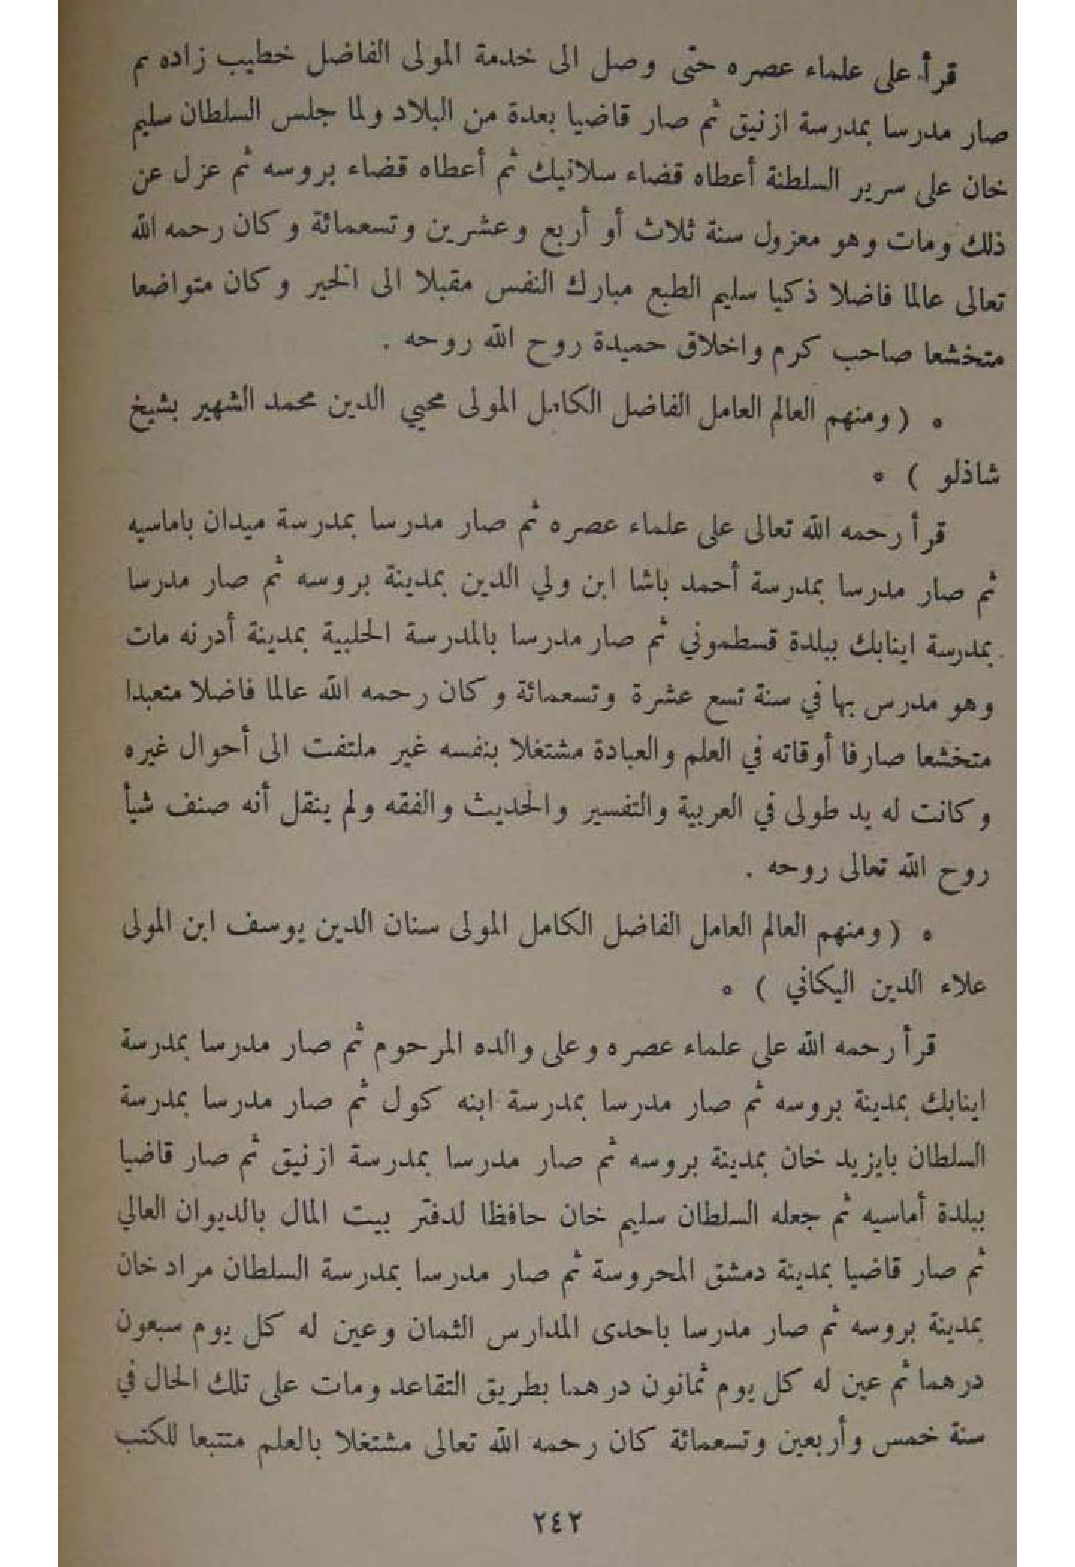 قرأ على علماء عصره حتى وصل الى خدمة المولى الفاضل خطيب زاده ثم
صار مدرسا بمدرسة ازنيق ثم صار قاضيا بعدة من البلاد ولما جلس السلطان سليم
خان على سرير السلطنة أعطاه قضاء سلانيك ثم أعطاه قضاء بروسه ثم عزل عن
ذلك ومات وهو معزول سنة ثلاث أو أربع وعشرين وتسعمائة وكان رحمه الله
تعالى عالما فاضلا ذكيا سليم الطبع مبارك النفس مقبلا الى الخير وكان متواضعا
متخشعا صاحب كرم واخلاق حميدة روح الله روحه .
* ( ومنهم العالم العامل الفاضل الكامل المولى محيي الدين محمد الشهير بشيخ
شاذلو ) *
قرأ رحمه الله تعالى على علماء عصره ثم صار مدرسا بمدرسة ميدان باماسيه
ثم صار مدرسا بمدرسة أحمد باشا ابن ولي الدين بمدينة بروسه ثم صار مدرسا
بمدرسة اينابك ببلدة قسطموني ثم صار مدرسا بالمدرسة الحلبية بمدينة أدرنه مات
وهو مدرس بها في سنة تسع عشرة وتسعمائة وكان رحمه الله عالما فاضلا متعبدا
متخشعا صارفا أوقاته في العلم والعبادة مشتغلا بنفسه غير ملتفت الى أحوال غيره
وكانت له يد طولى في العربية والتفسير والحديث والفقه ولم ينقل أنه صنف شيأ
روح الله تعالى روحه .
* ( ومنهم العالم العامل الفاضل الكامل المولى سنان الدين يوسف ابن المولى
علاء الدين اليكاني ) *
قرأ رحمه الله على علماء عصره وعلى والده المرحوم ثم صار مدرسا بمدرسة
اينابك بمدينة بروسه ثم صار مدرسا بمدرسة ابنه كول ثم صار مدرسا بمدرسة
السلطان بايزيد خان بمدينة بروسه ثم صار مدرسا بمدرسة ازنيق ثم صار قاضيا
ببلدة أماسيه ثم جعله السلطان سليم خان حافظا لدفتر بيت المال بالديوان العالي
ثم صار قاضيا بمدينة دمشق المحروسة ثم صار مدرسا بمدرسة السلطان مراد خان
بمدينة بروسه ثم صار مدرسا باحدى المدارس الثمان وعين له كل يوم سبعون
درهما ثم عين له كل يوم ثمانون درهما بطريق التقاعد ومات على تلك الحال في
سنة خمس وأربعين وتسعمائة كان رحمه الله تعالى مشتغلا بالعلم متتبعا للكتب
٢٤٢